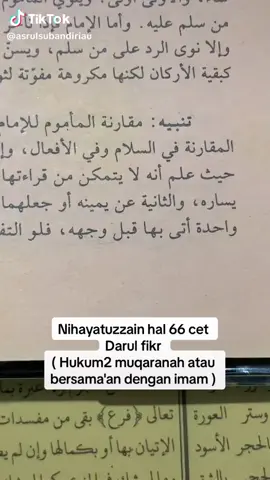 TikTok
@asrulsubandiriau
من سلم عليه. وأما الإمام
وإلا نوى الرد على من سلم، ويسن
كبقية الأركان لكنها مكروهة مفوّتة
تنبيه: مقارنة المأموم للإمام
المقارنة في السلام وفي الأفعال، وإ
حيث علم أنه لا يتمكن من قراءتها
يساره، والثانية عن يمينه أو جعلهما
واحدة أتى بها قبل وجهه، فلو
Nihayatuzzain hal 66 cet
Darul fikr
( Hukum2 muqaranah atau
bersama'an dengan imam )
وستر العورة
تعالى ﴿فرع﴾ بقي من مفسدات
الحجر الأسود
الإتيان بها أو بكمالها وإن لم